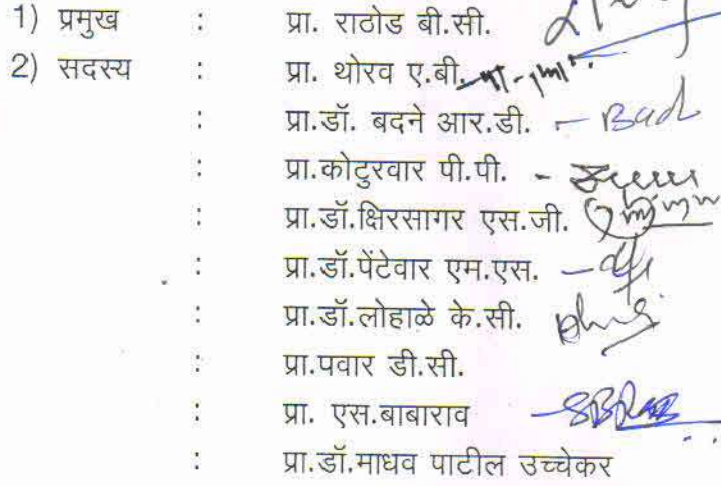 1) प्रमुख : प्रा. राठोड बी.सी.
2) सदस्य : प्रा. थोरव ए.बी.
: प्रा.डॉ. बदने आर.डी. - Bad
: प्रा.कोटुरवार पी.पी. -
: प्रा.डॉ.क्षिरसागर एस.जी.
: प्रा.डॉ.पेंटेवार एम.एस. -
: प्रा.डॉ.लोहाळे के.सी.
: प्रा.पवार डी.सी.
: प्रा. एस.बाबाराव -
: प्रा.डॉ.माधव पाटील उच्चेकर